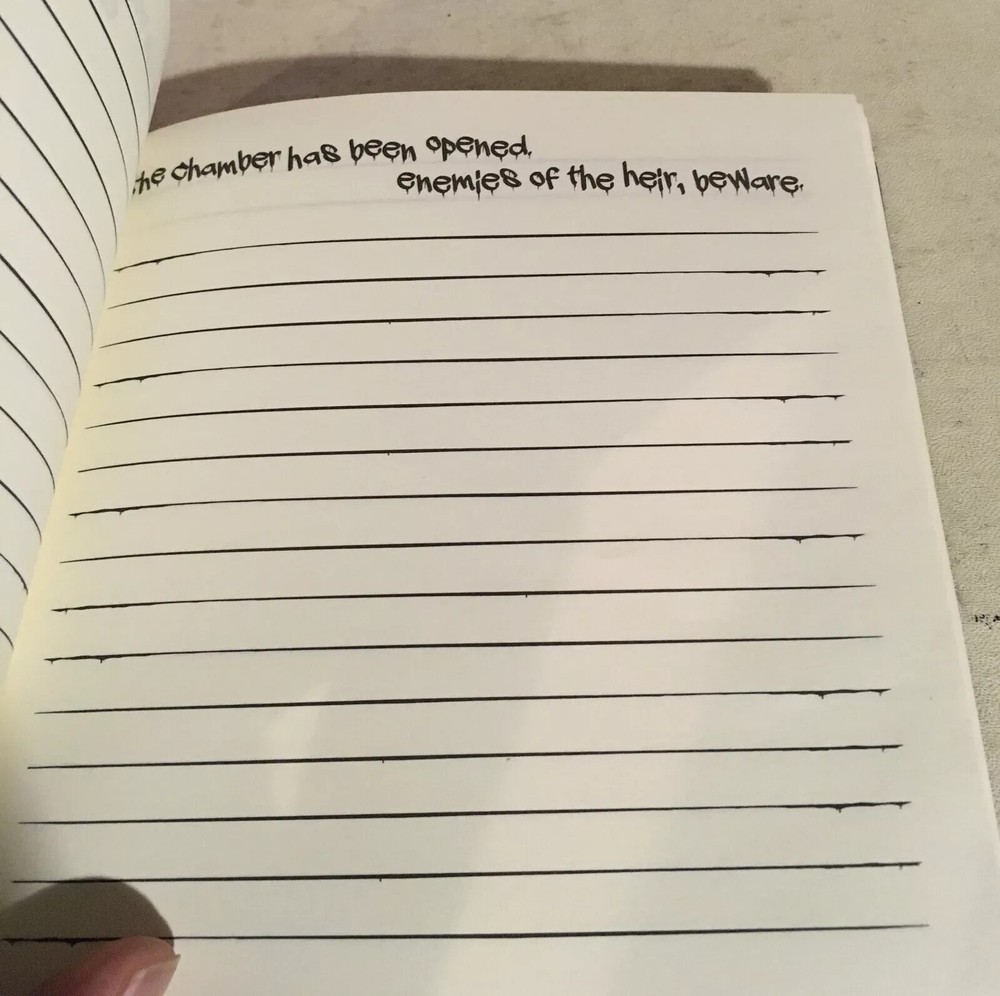 the chamber has been opened.
enemies of the heir, beware.